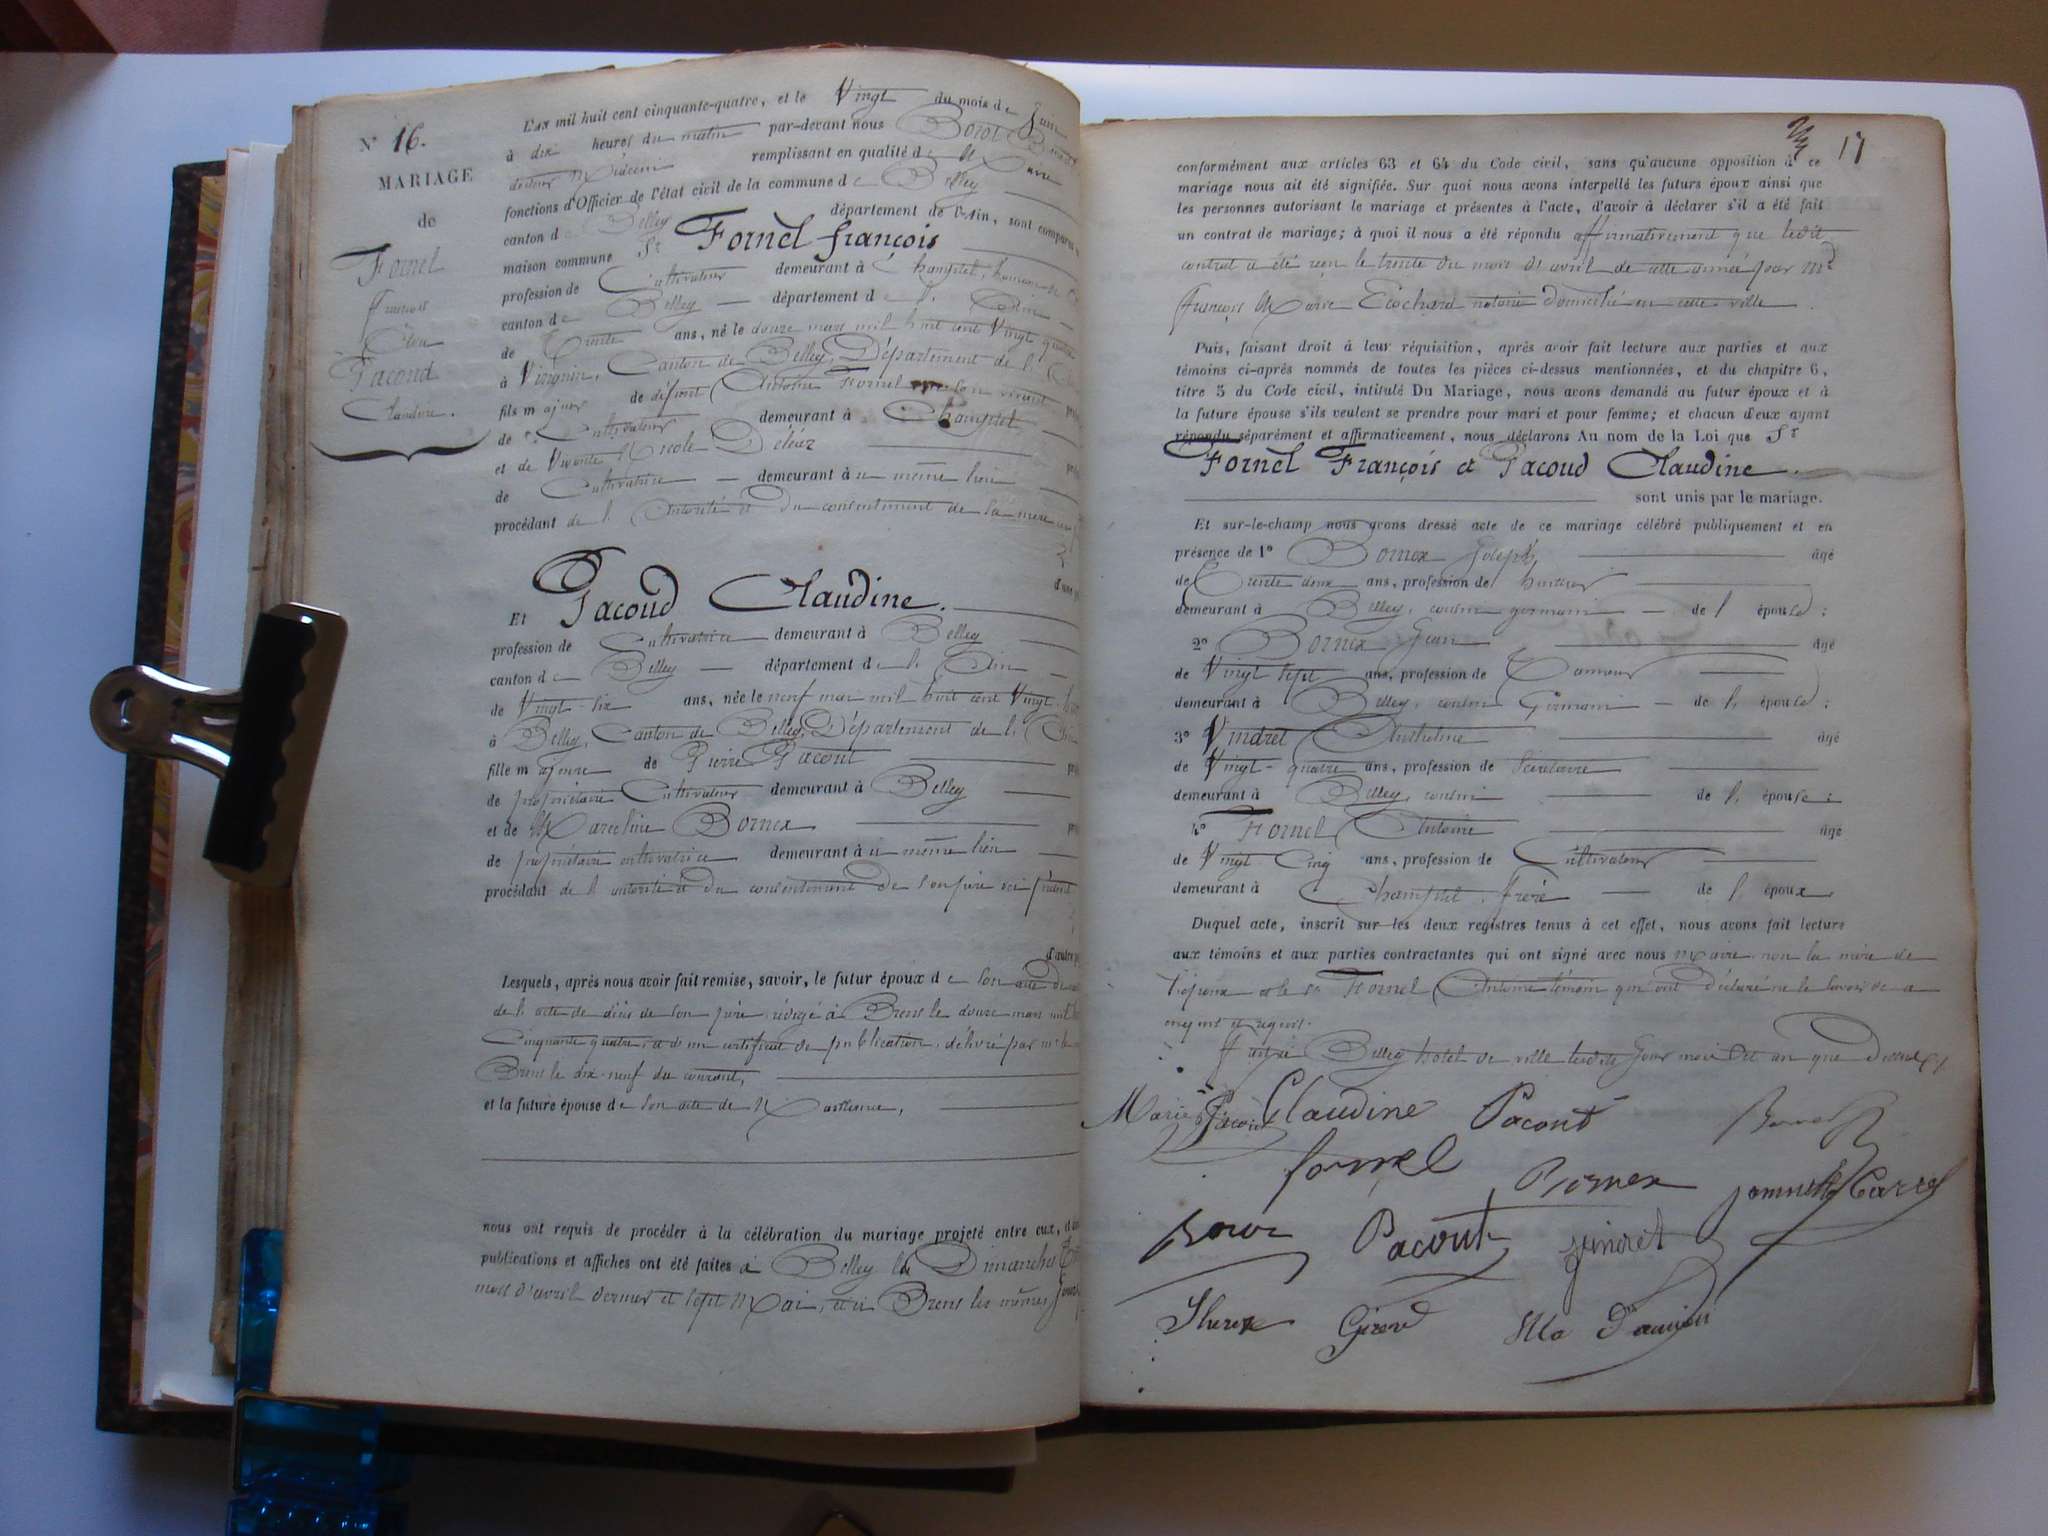 N° 16.
MARIAGE
de
Fornel
François
Et
Pacoud
Claudine.
L'an mil huit cent cinquante-quatre, et le Vingt du mois de Juin
à dix heures du matin par-devant nous
docteur Médecin remplissant en qualité de Maire
fonctions d'Officier de l'état civil de la commune de Belley
canton de Belley département de l'Ain, sont comparus
maison commune Sr Fornel françois
profession de Cultivateur demeurant à
canton de Belley département de l'Ain
de Trente ans, né le douze mars mil huit cent Vingt quatre
à Virignin, Canton de Belley, Département de l'Ain
fils majeur de défunt Antoine Fornel
de Cultivateur demeurant à
et de Vivante
de Cultivatrice demeurant au même lieu
procédant de l'Autorité et du consentement de sa mère
Et Pacoud Claudine.
profession de Cultivatrice demeurant à Belley
canton de Belley département de l'Ain
de Vingt-six ans, née le neuf mai mil huit cent Vingt
à Belley, Canton de Belley, Département de l'Ain
fille majeure de Pierre Pacout
de propriétaire Cultivateur demeurant à Belley
et de Marceline Bornex
de propriétaire cultivatrice demeurant au même lieu
procédant de l'autorité et du consentement de son père ici présent
Lesquels, après nous avoir fait remise, savoir, le futur époux de son acte de
de l'acte de décès de son père, rédigé à Brens le douze mars mil
Cinquante quatre, et d'un certificat de publication, délivré par
Brens le dix-neuf du courant,
et la future épouse de son acte de Naissance,
nous ont requis de procéder à la célébration du mariage projeté entre eux,
publications et affiches ont été faites à Belley les Dimanches
mois d'avril dernier et sept Mai, et à Brens les mêmes jours
17
conformément aux articles 63 et 64 du Code civil, sans qu'aucune opposition à ce
mariage nous ait été signifiée. Sur quoi nous avons interpellé les futurs époux ainsi que
les personnes autorisant le mariage et présentes à l'acte, d'avoir à déclarer s'il a été fait
un contrat de mariage; à quoi il nous a été répondu affirmativement que ledit
contrat a été reçu le trente du mois d'avril de cette année par Me
François Marie Ecochard notaire domicilié en cette ville.
Puis, faisant droit à leur réquisition, après avoir fait lecture aux parties et aux
témoins ci-après nommés de toutes les pièces ci-dessus mentionnées, et du chapitre 6,
titre 5 du Code civil, intitulé Du Mariage, nous avons demandé au futur époux et à
la future épouse s'ils veulent se prendre pour mari et pour femme; et chacun d'eux ayant
répondu séparément et affirmativement, nous déclarons Au nom de la Loi que Sr
Fornel François et Pacoud Claudine.
sont unis par le mariage.
Et sur-le-champ nous avons dressé acte de ce mariage célébré publiquement et en
présence de 1° Bornex Joseph âgé
de Trente deux ans, profession de huissier
demeurant à Belley, cousin germain de l'épouse;
2° Bornex Jean âgé
de Vingt sept ans, profession de Tanneur
demeurant à Belley, cousin Germain de l'épouse;
3° Vindret Anthelme âgé
de Vingt-quatre ans, profession de Secrétaire
demeurant à Belley, cousin de l'épouse;
4° Fornel Antoine âgé
de Vingt-Cinq ans, profession de Cultivateur
demeurant à frère de l'époux
Duquel acte, inscrit sur les deux registres tenus à cet effet, nous avons fait lecture
aux témoins et aux parties contractantes qui ont signé avec nous maire non la mère de
l'époux et le Sr Fornel Antoine témoin qui ont déclaré ne le savoir de ce
enquis et requis.
fait à Belley hotel de ville lesdits jour mois et an que dessus
Marie Pacout Claudine Pacout
fornel Bornex
Pacout Vindret
Girord